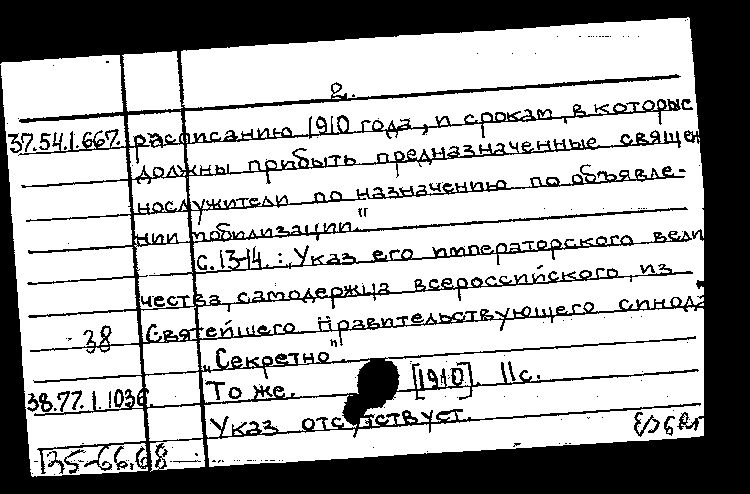 2.
37.54.1.667. расписанию 1910 года, и срокам, в которые
должны прибыть предназначенные священ
нослужители по назначению по объявле-
нии мобилизации."
с.13-14.: „Указ его императорского вели
чества, самодержца всероссийского, из
38 Святейшего правительствующего синода
„Секретно".
38.77.1.1036. То же. [1910]. 11с.
Указ отсутствует.
135-66.68